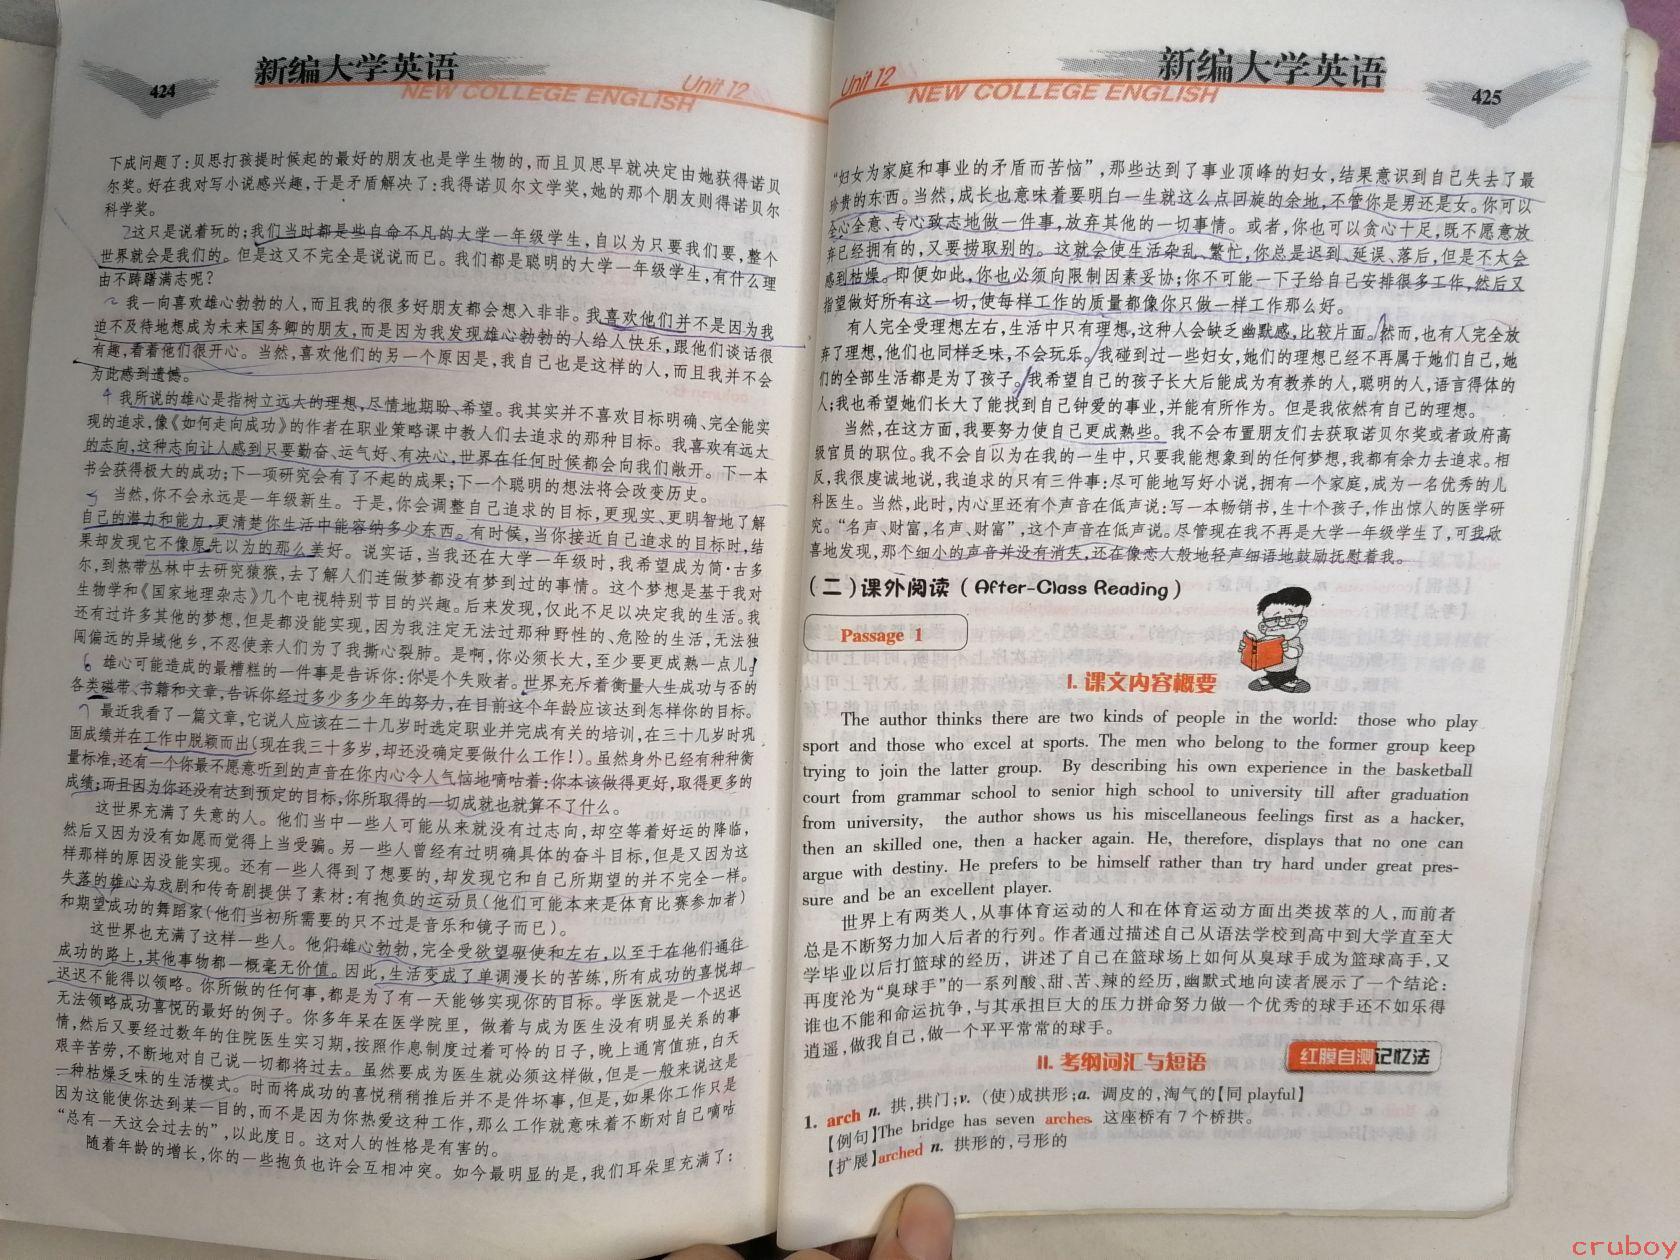 424
新编大学英语
NEW COLLEGE ENGLISH
Unit 12
下成问题了:贝思打孩提时候起的最好的朋友也是学生物的,而且贝思早就决定由她获得诺贝
尔奖。好在我对写小说感兴趣,于是矛盾解决了:我得诺贝尔文学奖,她的那个朋友则得诺贝尔
科学奖。
2这只是说着玩的;我们当时都是些自命不凡的大学一年级学生,自以为只要我们要,整个
世界就会是我们的。但是这又不完全是说说而已。我们都是聪明的大学一年级学生,有什么理
由不踌躇满志呢?
我一向喜欢雄心勃勃的人,而且我的很多好朋友都会想入非非。我喜欢他们并不是因为我
迫不及待地想成为未来国务卿的朋友,而是因为我发现雄心勃勃的人给人快乐,跟他们谈话很
有趣,看着他们很开心。当然,喜欢他们的另一个原因是,我自己也是这样的人,而且我并不会
为此感到遗憾。
4 我所说的雄心是指树立远大的理想,尽情地期盼、希望。我其实并不喜欢目标明确、完全能实
现的追求,像《如何走向成功》的作者在职业策略课中教人们去追求的那种目标。我喜欢有远大
的志向,这种志向让人感到只要勤奋、运气好、有决心,世界在任何时候都会向我们敞开。下一本
书会获得极大的成功;下一项研究会有了不起的成果;下一个聪明的想法将会改变历史。
5 当然,你不会永远是一年级新生。于是,你会调整自己追求的目标,更现实、更明智地了解
自己的潜力和能力,更清楚你生活中能容纳多少东西。有时候,当你接近自己追求的目标时,结
果却发现它不像原先以为的那么美好。说实话,当我还在大学一年级时,我希望成为简·古多
尔,到热带丛林中去研究猿猴,去了解人们连做梦都没有梦到过的事情。这个梦想是基于我对
生物学和《国家地理杂志》几个电视特别节目的兴趣。后来发现,仅此不足以决定我的生活。我
还有过许多其他的梦想,但是都没能实现,因为我注定无法过那种野性的、危险的生活,无法独
闯偏远的异域他乡,不忍使亲人们为了我撕心裂肺。是啊,你必须长大,至少要更成熟一点儿。
6 雄心可能造成的最糟糕的一件事是告诉你:你是个失败者。世界充斥着衡量人生成功与否的
各类磁带、书籍和文章,告诉你经过多少多少年的努力,在目前这个年龄应该达到怎样你的目标。
7 最近我看了一篇文章,它说人应该在二十几岁时选定职业并完成有关的培训,在三十几岁时巩
固成绩并在工作中脱颖而出(现在我三十多岁,却还没确定要做什么工作!)。虽然身外已经有种种衡
量标准,还有一个你最不愿意听到的声音在你内心令人气恼地嘀咕着:你本该做得更好,取得更多的
成绩;而且因为你还没有达到预定的目标,你所取得的一切成就也就算不了什么。
这世界充满了失意的人。他们当中一些人可能从来就没有过志向,却空等着好运的降临,
然后又因为没有如愿而觉得上当受骗。另一些人曾经有过明确具体的奋斗目标,但是又因为这
样那样的原因没能实现。还有一些人得到了想要的,却发现它和自己所期望的并不完全一样。
失落的雄心为戏剧和传奇剧提供了素材:有抱负的运动员(他们可能本来是体育比赛参加者)
和期望成功的舞蹈家(他们当初所需要的只不过是音乐和镜子而已)。
这世界也充满了这样一些人。他们雄心勃勃,完全受欲望驱使和左右,以至于在他们通往
成功的路上,其他事物都一概毫无价值。因此,生活变成了单调漫长的苦练,所有成功的喜悦却
迟迟不能得以领略。你所做的任何事,都是为了有一天能够实现你的目标。学医就是一个迟迟
无法领略成功喜悦的最好的例子。你多年呆在医学院里,做着与成为医生没有明显关系的事
情,然后又要经过数年的住院医生实习期,按照作息制度过着可怜的日子,晚上通宵值班,白天
艰辛苦劳,不断地对自己说一切都将过去。虽然要成为医生就必须这样做,但是一般来说这是
一种枯燥乏味的生活模式。时而将成功的喜悦稍稍推后并不是件坏事,但是,如果你工作只是
因为这能使你达到某一目的,而不是因为你热爱这种工作,那么工作就意味着不断对自己嘀咕
“总有一天这会过去的”,以此度日。这对人的性格是有害的。
随着年龄的增长,你的一些抱负也许会互相冲突。如今最明显的是,我们耳朵里充满了:
Unit 12
新编大学英语
NEW COLLEGE ENGLISH
425
“妇女为家庭和事业的矛盾而苦恼”,那些达到了事业顶峰的妇女,结果意识到自己失去了最
珍贵的东西。当然,成长也意味着要明白一生就这么点回旋的余地,不管你是男还是女。你可以
全心全意、专心致志地做一件事,放弃其他的一切事情。或者,你也可以贪心十足,既不愿意放
弃已经拥有的,又要捞取别的。这就会使生活杂乱、繁忙,你总是迟到、延误、落后,但是不太会
感到枯燥。即便如此,你也必须向限制因素妥协;你不可能一下子给自己安排很多工作,然后又
指望做好所有这一切,使每样工作的质量都像你只做一样工作那么好。
有人完全受理想左右,生活中只有理想,这种人会缺乏幽默感,比较片面。然而,也有人完全放
弃了理想,他们也同样乏味,不会玩乐。我碰到过一些妇女,她们的理想已经不再属于她们自己,她
们的全部生活都是为了孩子。我希望自己的孩子长大后能成为有教养的人,聪明的人,语言得体的
人;我也希望她们长大了能找到自己钟爱的事业,并能有所作为。但是我依然有自己的理想。
当然,在这方面,我要努力使自己更成熟些。我不会布置朋友们去获取诺贝尔奖或者政府高
级官员的职位。我不会自以为在我的一生中,只要我能想象到的任何梦想,我都有余力去追求。相
反,我很虔诚地说,我追求的只有三件事:尽可能地写好小说,拥有一个家庭,成为一名优秀的儿
科医生。当然,此时,内心里还有个声音在低声说:写一本畅销书,生十个孩子,作出惊人的医学研
究。“名声、财富,名声、财富”,这个声音在低声说。尽管现在我不再是大学一年级学生了,可我欣
喜地发现,那个细小的声音并没有消失,还在像恋人般地轻声细语地鼓励抚慰着我。
(二)课外阅读(After-Class Reading)
Passage 1
I. 课文内容概要
The author thinks there are two kinds of people in the world: those who play
sport and those who excel at sports. The men who belong to the former group keep
trying to join the latter group. By describing his own experience in the basketball
court from grammar school to senior high school to university till after graduation
from university, the author shows us his miscellaneous feelings first as a hacker,
then an skilled one, then a hacker again. He, therefore, displays that no one can
argue with destiny. He prefers to be himself rather than try hard under great pres-
sure and be an excellent player.
世界上有两类人,从事体育运动的人和在体育运动方面出类拔萃的人,而前者
总是不断努力加入后者的行列。作者通过描述自己从语法学校到高中到大学直至大
学毕业以后打篮球的经历,讲述了自己在篮球场上如何从臭球手成为篮球高手,又
再度沦为“臭球手”的一系列酸、甜、苦、辣的经历,幽默式地向读者展示了一个结论:
谁也不能和命运抗争,与其承担巨大的压力拼命努力做一个优秀的球手还不如乐得
逍遥,做我自己,做一个平平常常的球手。
II. 考纲词汇与短语
红膜自测记忆法
1. arch n. 拱,拱门;v. (使)成拱形;a. 调皮的,淘气的【同 playful】
【例句】The bridge has seven arches 这座桥有 7 个桥拱。
【扩展】arched n. 拱形的,弓形的
cruboy